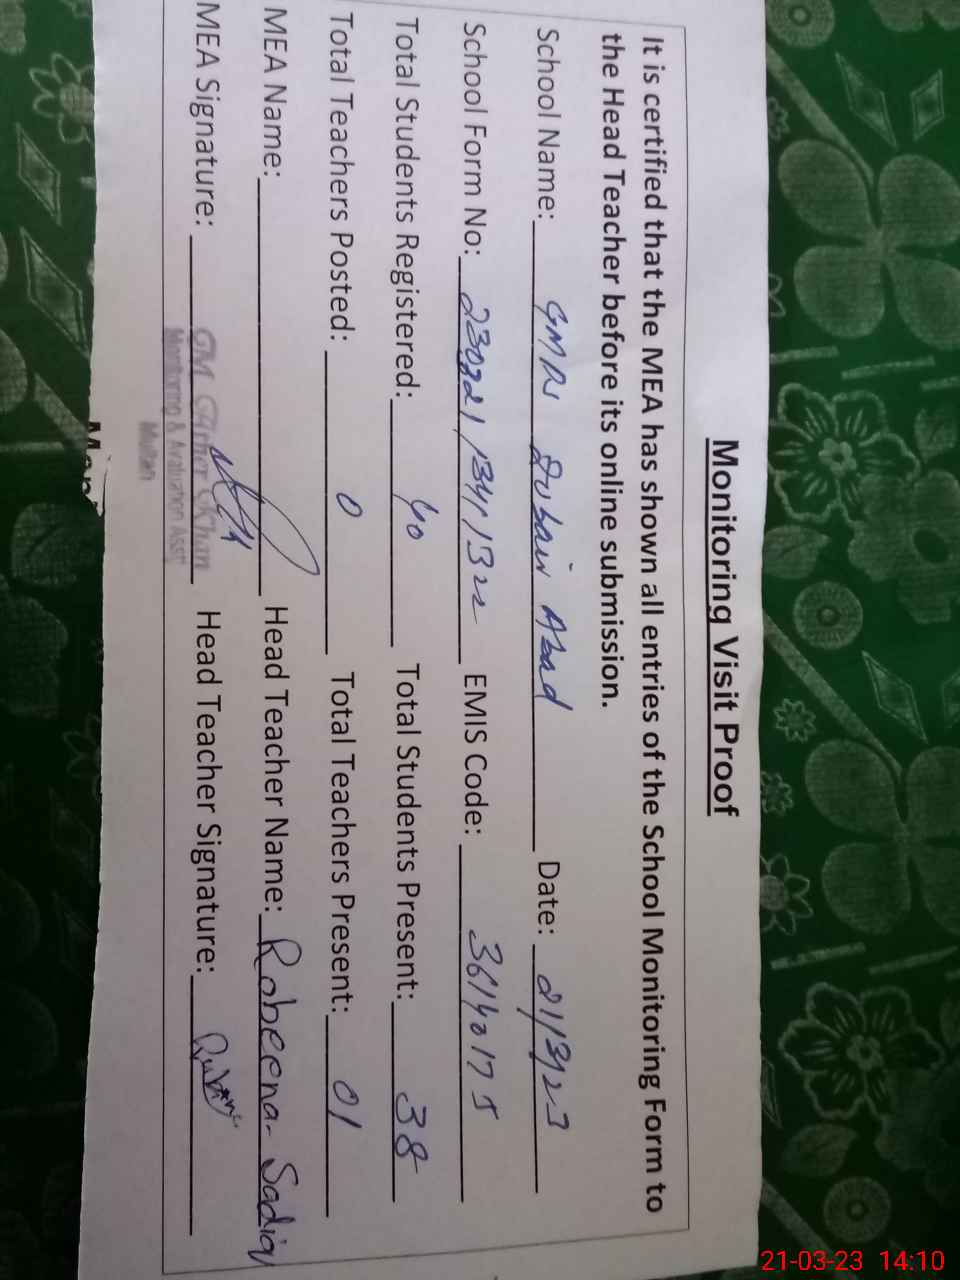 Monitoring Visit Proof
It is certified that the MEA has shown all entries of the School Monitoring Form to
the Head Teacher before its online submission.
School Name: GMPS Zubair Abad Date: 21/3/23
School Form No: EMIS Code:
Total Students Registered: 40 Total Students Present: 38
Total Teachers Posted: 0 Total Teachers Present: 01
MEA Name: Head Teacher Name: Robeena Sadiq
MEA Signature: Head Teacher Signature:
Khan
Monitoring & Evaluation Asstt
Multan
21-03-23 14:10